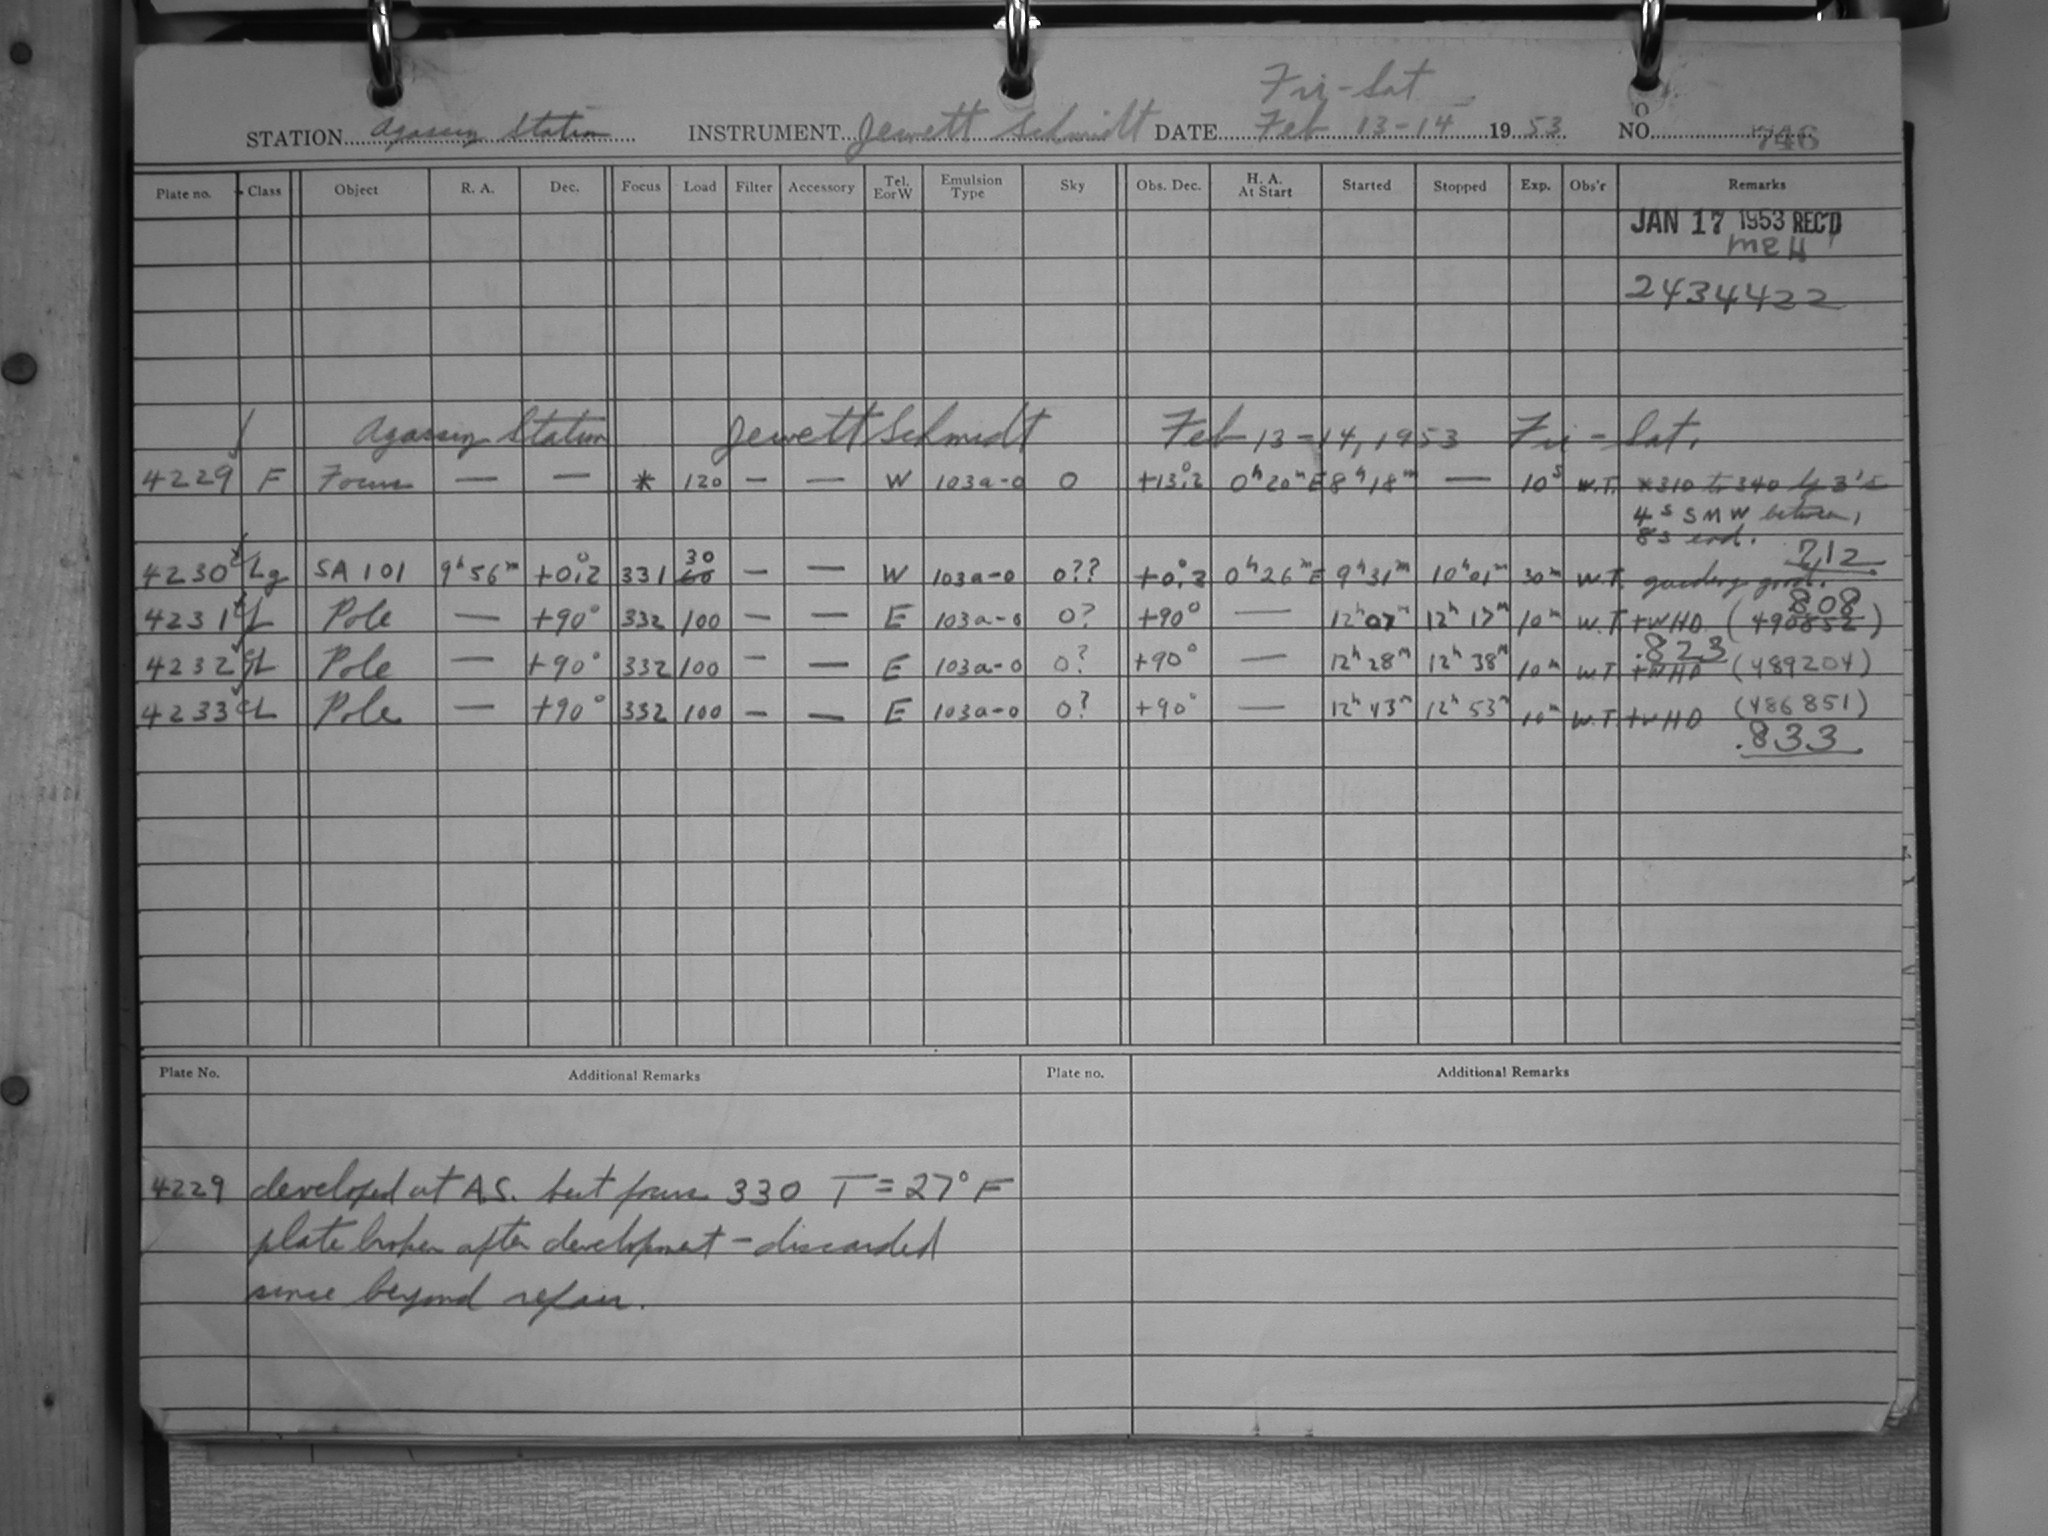 Fri-Sat
STATION Agassiz Station INSTRUMENT Jewett Schmidt DATE Feb 13-14 1953 NO. 746
Plate no. Class Object R. A. Dec. Focus Load Filter Accessory Tel. E or W Emulsion Type Sky Obs. Dec. H. A. At Start Started Stopped Exp. Obs'r Remarks
JAN 17 1953 REC'D
MRH
2434422
Agassiz Station Jewett Schmidt Feb 13-14, 1953 Fri - Sat.
4229 F Focus — — * 120 — — W 103a-0 0 +13°.2 0h 20m E 8h 18m — 10s W.T. *310 to 340 by 3's
4s SMW between,
8s end.
.712
4230 Lg SA 101 9h 56m +0°.2 331 30 60 — — W 103a-0 0?? +0°.2 0h 26m E 9h 31m 10h 01m 30m W.T. guiding good.
.808
4231 L Pole — +90° 332 100 — — E 103a-0 0? +90° — 12h 07m 12h 17m 10m W.T +WHD (490852)
.823
4232 L Pole — +90° 332 100 — — E 103a-0 0? +90° — 12h 28m 12h 38m 10m W.T +WHD (489204)
4233 L Pole — +90° 332 100 — — E 103a-0 0? +90° — 12h 43m 12h 53m 10m W.T. +WHD (486851)
.833
Plate No. Additional Remarks Plate no. Additional Remarks
4229 developed at A.S. best focus 330 T = 27°F
plate broken after development - discarded
since beyond repair.